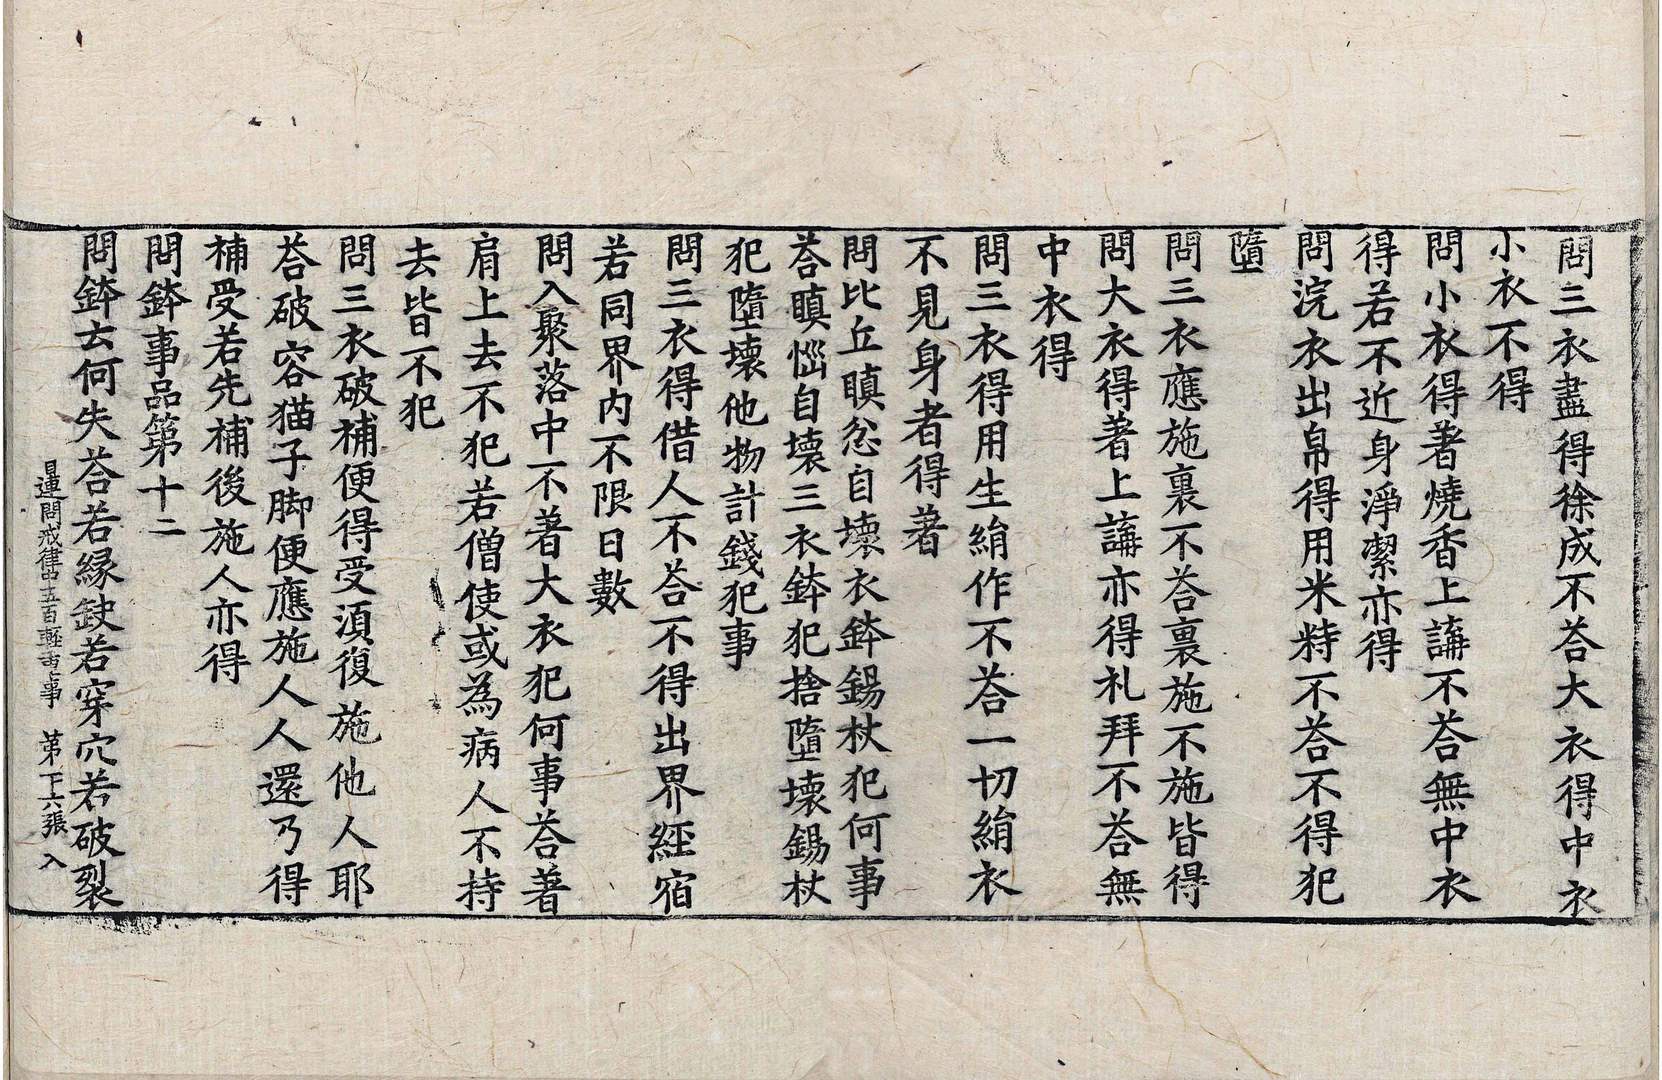 問三衣盡得徐成不荅大衣得中衣
小衣不得
問小衣得著燒香上講不荅無中衣
得若不近身淨潔亦得
問浣衣出帛得用米粉不荅不得犯
墮
問三衣應施裏不荅裏施不施皆得
問大衣得著上講亦得礼拜不荅無
中衣得
問三衣得用生絹作不荅一切絹衣
不見身者得著
問比丘瞋忿自壞衣鉢錫杖犯何事
荅瞋惱自壞三衣鉢犯捨墮壞錫杖
犯墮壞他物計錢犯事
問三衣得借人不荅不得出界經宿
若同界內不限日數
問入聚落中不著大衣犯何事荅著
肩上去不犯若僧使或為病人不持
去皆不犯
問三衣破補便得受湏復施他人耶
荅破容猫子脚便應施人人還乃得
補受若先補後施人亦得
問鉢事品第十二
問鉢云何失荅若緣缺若穿穴若破裂
目連問戒律中五百輕重事 第十六張 入